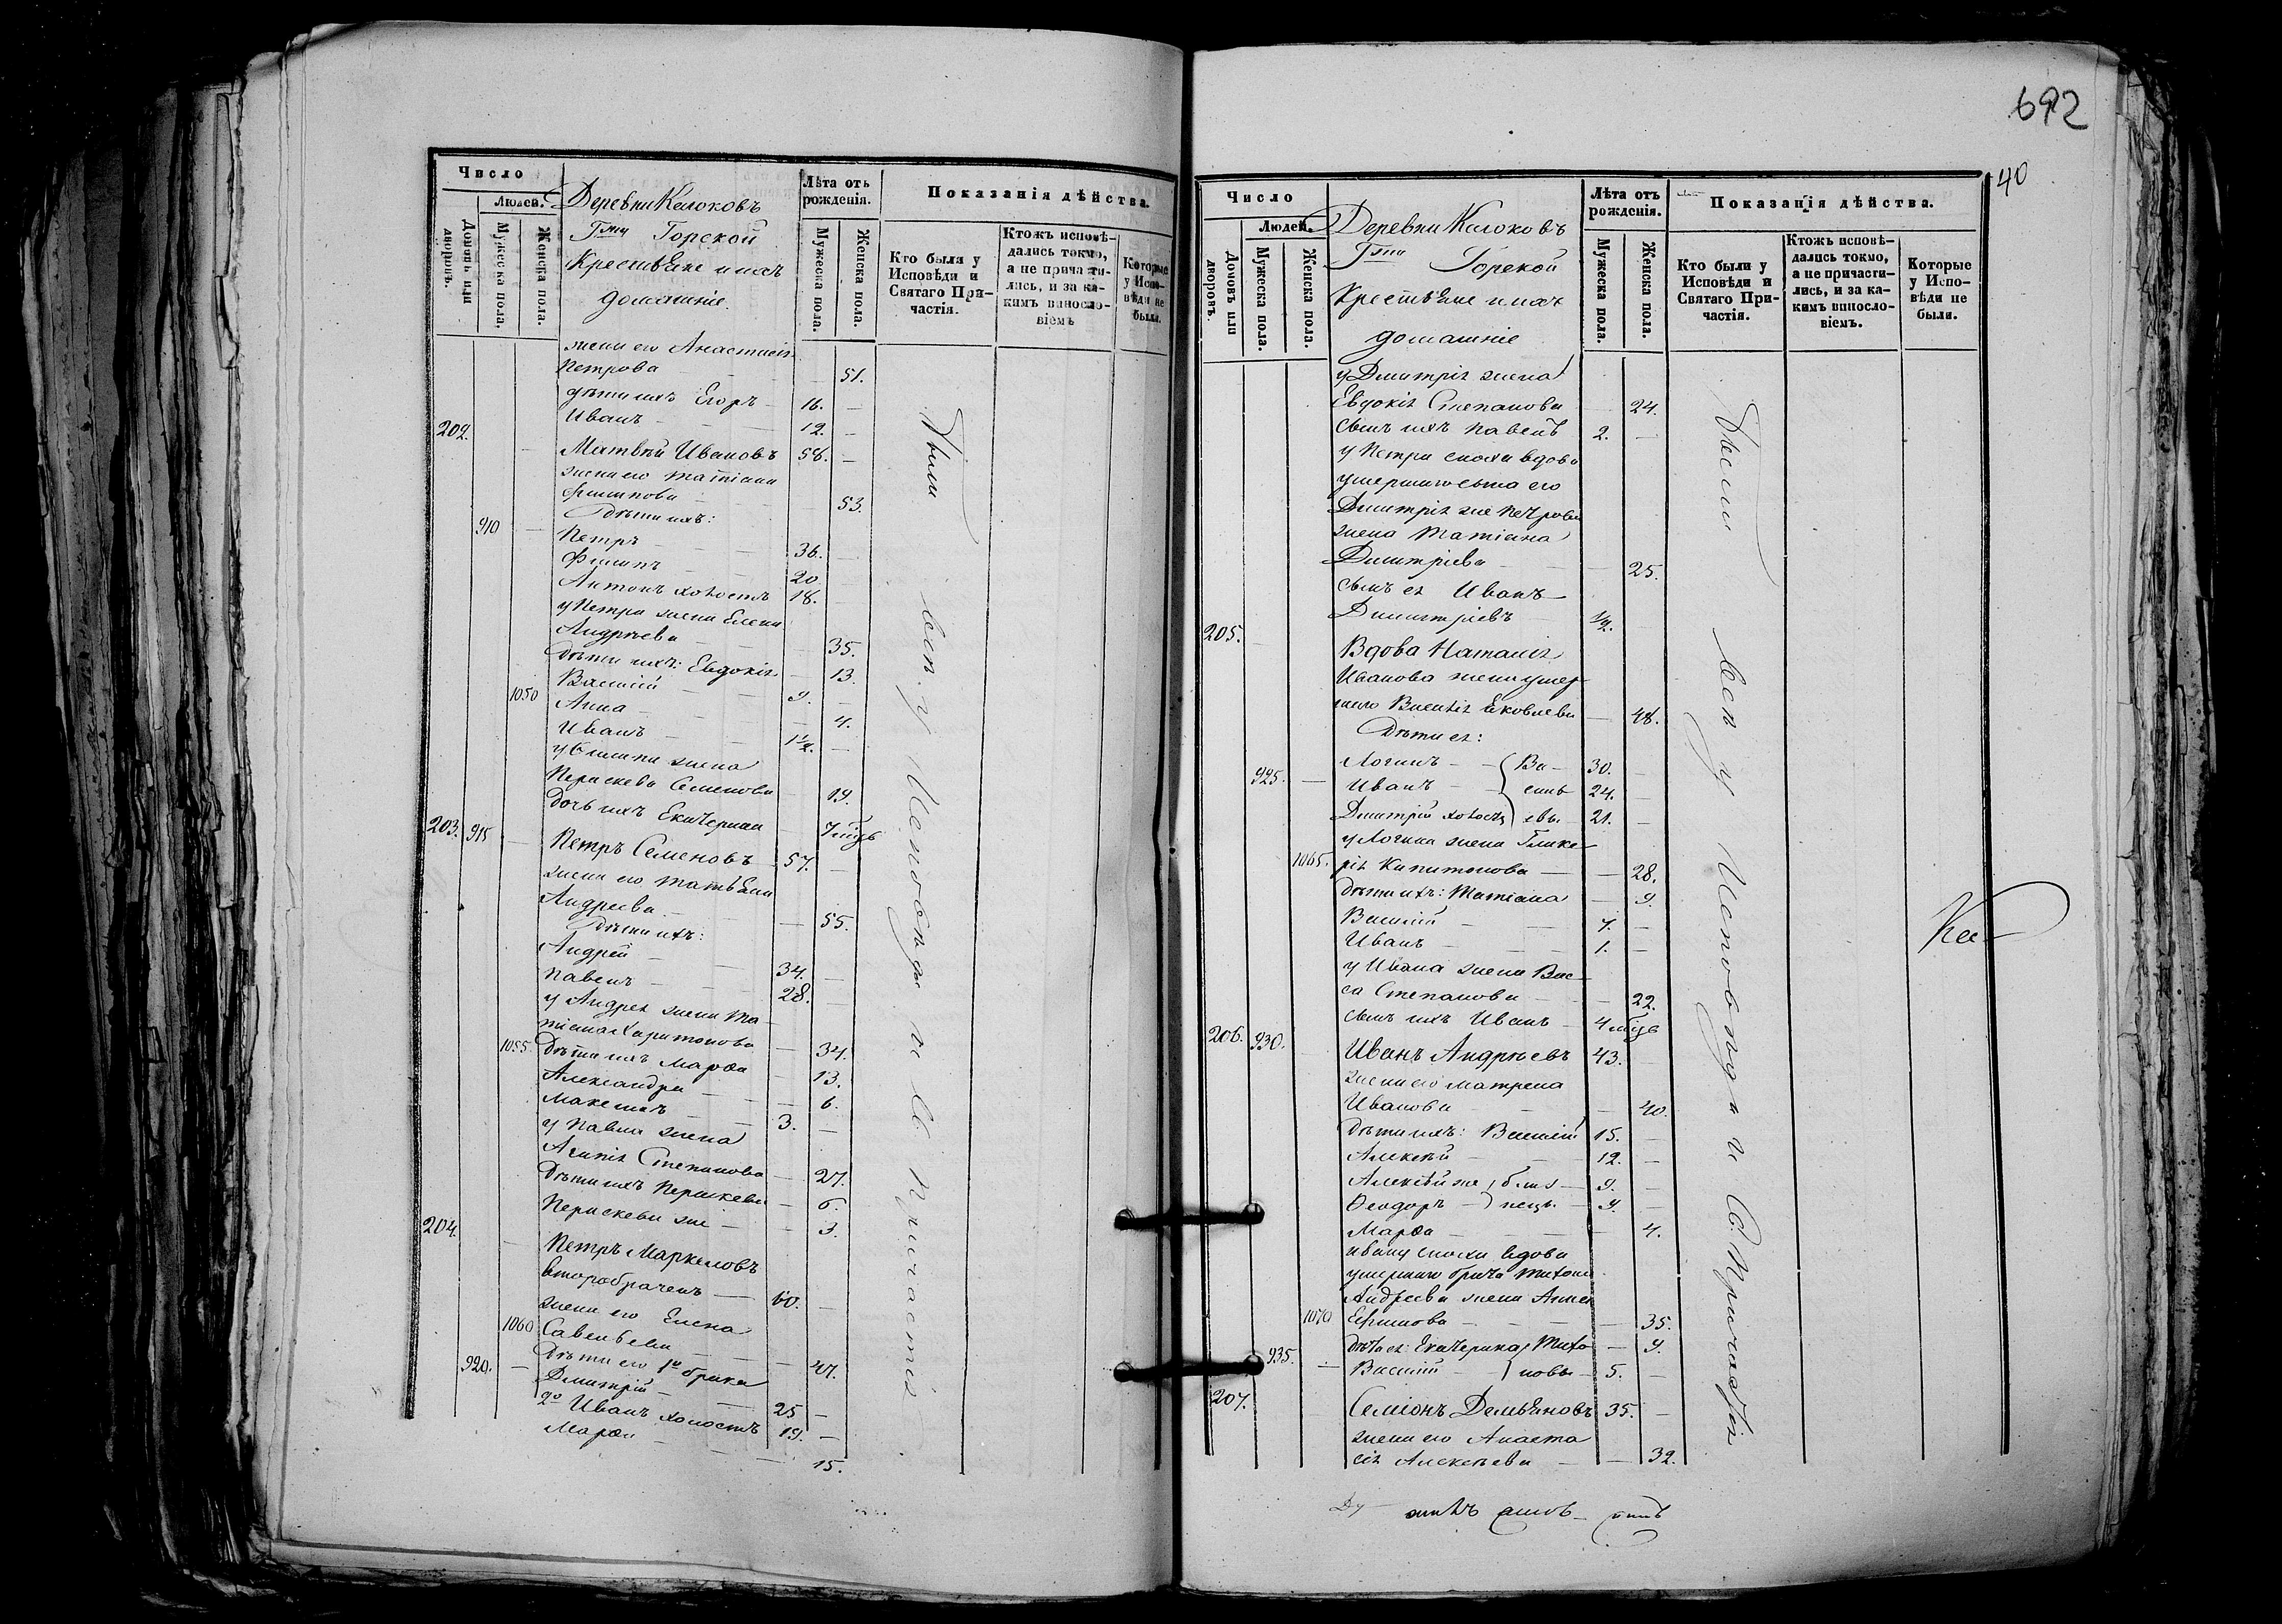 Число
Людей.
Домовъ или дворовъ.
Мужеска пола.
Женска пола.
Деревни Колоковъ
Г-жи Горской
Крестьяне и ихъ
домашніе.
Лѣта отъ рожденія.
Мужеска пола.
Женска пола.
Показанія дѣйства.
Кто были у Исповѣди и Святаго Причастія.
Ктожъ исповѣдались токмо, а не причастились, и за какимъ винословіемъ
Которые у Исповѣди не были.
жена его Анастасія
Петрова 51.
дѣти ихъ Егоръ 16. —
Иванъ 12. —
202. Матвѣй Ивановъ 58. —
жена его Татіана
Филипова 53.
Дѣти ихъ:
910 Петръ 36. —
Филипъ 20
Антонъ холостъ 18.
у Петра жена Елена
Андреева 35.
Дѣти ихъ: Евдокія 13.
1050 Василій 9. —
Анна 4.
Иванъ 1½. —
у Филипа жена
Параскева Семенова 19.
дочь ихъ Екатерина 7 мѣс.
203. 915 Петръ Семеновъ 57. —
жена его Татьяна
Андреева 55.
Дѣти ихъ:
Андрей 34. —
Павелъ 28. —
у Андрея жена Та-
тіана Харитонова 34.
1055. Дѣти ихъ Марѳа 13.
Александра 6.
Максимъ 3. —
у Павла жена
Агапія Степанова 27.
Дѣти ихъ Параскева 6.
Параскева же 3.
204. Петръ Маркеловъ
второбраченъ 60. —
жена его Елена
1060 Савельева 47.
920. Дѣти его 1го брака
Дмитрій 25 —
2го Иванъ холостъ 19. —
Марѳа 15.
Были всѣ у Исповѣди и Св. Причастія
692
40
Число
Людей.
Домовъ или дворовъ.
Мужеска пола.
Женска пола.
Деревни Колоковъ
Г-жи Горской
Крестьяне и ихъ
домашніе
Лѣта отъ рожденія.
Мужеска пола.
Женска пола.
Показанія дѣйства.
Кто были у Исповѣди и Святаго Причастія.
Ктожъ исповѣдались токмо, а не причастились, и за какимъ винословіемъ.
Которые у Исповѣди не были.
у Дмитрія жена
Евдокія Степанова 24.
сынъ ихъ Павелъ 2. —
у Петра сноха вдова
умершаго сына его
Димитрія же Петрова
жена Татіана
Димитріева 25.
сынъ ея Иванъ
Димитріевъ ½.
205. Вдова Наталія
Иванова жена умер-
шаго Василія Яковлева 48.
Дѣти ея:
925. Логинъ Ва- 30. —
Иванъ силь- 24. —
Дмитрій холостъ евы 21. —
у Логина жена Глике-
1065. рія Капитонова 28.
дѣти ихъ: Татіана 9.
Василій 7. —
Иванъ 1. —
у Ивана жена Вас-
са Степанова 22.
сынъ ихъ Иванъ 4 мѣс.
206. 930. Иванъ Андреевъ 43. —
жена его Матрена
Иванова 40.
дѣти ихъ: Василій 15. —
Алексѣй 12. —
Алексѣй же близ- 9. —
Ѳеодоръ нецы 9. —
Марѳа 4.
Ивану сноха вдова
умершаго брата Тихона
Андреева жена Анна
1070 Ефимова 35.
дѣти ея: Екатерина Тихо- 9.
935. Василій новы 5. —
207. Семіонъ Демьяновъ 35. —
жена его Анаста-
сія Алексѣева 32.
Были всѣ у Исповѣди и Св. Причастія